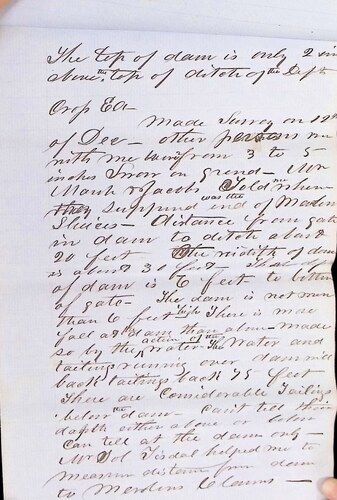 The top of dam is only 2 in
above the top of ditch of the Deft
Cross Ea-
Made Survey on 12th
of Dec - other persons
with me from 3 to 5
inches Snow on Ground - Mr
Marsh & Jacobs Told me where
they supposed was the end of Maden
Sluices - distance from gate
in dam to ditch about
20 feet The width of dam
is about 30 feet -
of dam is 6 feet to bottom
of gate - The dam is not more
than 6 feet high There is more
fall at dam than above - made
so by the action of the water - The Water and
tailing running over dam will
back tailings back 75 feet
There are Considerable Tailings
below the dam - Can't tell their
depth either above or below
Can tell at the dam only -
Mr Sol Tisdal helped me to
measure distance from dam
to Mordens Claims -